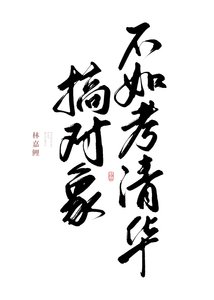 不如考清华
搞对象
林嘉鲤